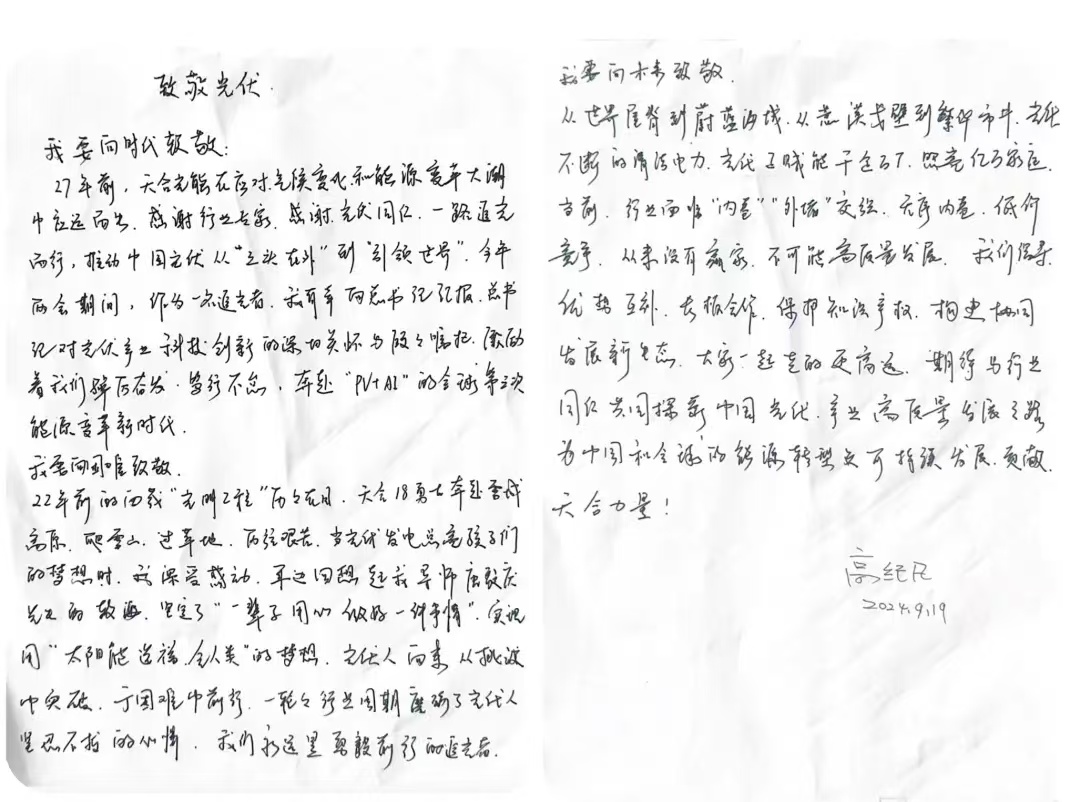 致敬光伏.
我要向时代致敬:
27年前，天合光能在应对气候变化和能源变革大潮
中应运而生. 感谢行业专家、感谢光伏同仁、一路追光
而行，推动中国光伏从“三头在外”到“引领世界”. 今年
两会期间，作为一名追光者. 我有幸向总书记汇报. 总书
记对光伏产业科技创新的深切关怀与殷殷嘱托. 激励
着我们踔厉奋发、笃行不怠，奔赴“PV+AI”的全球第三次
能源变革新时代.
我要向困难致敬.
22年前的西藏“光明工程”历历在目. 天合18勇士奔赴雪域
高原、爬雪山、过草地、历经艰苦. 当光伏发电点亮孩子们
的梦想时. 我深受感动. 耳边回想起我导师唐敖庆
先生的教诲. 坚定了“一辈子用心做好一件事情”. 实现
用“太阳能造福全人类”的梦想. 光伏人向来从挑战
中突破、于困难中前行. 一轮轮行业周期磨砺了光伏人
坚忍不拔的心情. 我们永远是勇毅前行的追光者.
我要向未来致敬.
从世界屋脊到蔚蓝海域. 从荒漠戈壁到繁华市井. 光伏
不断的清洁电力. 光伏了赋能千企百厂. 照亮亿万家庭.
当前. 行业面临“内卷”“外堵”交织. 无序内卷、低价
竞争、从来没有赢家. 不可能高质量发展. 我们倡导
优势互补、长板合作、保护知识产权. 构建协同
发展新生态. 大家一起走的更高远. 期待与行业
同仁共同探索中国光伏产业高质量发展之路
为中国和全球的能源转型及可持续发展. 贡献
天合力量！
高纪凡
2024.9.19